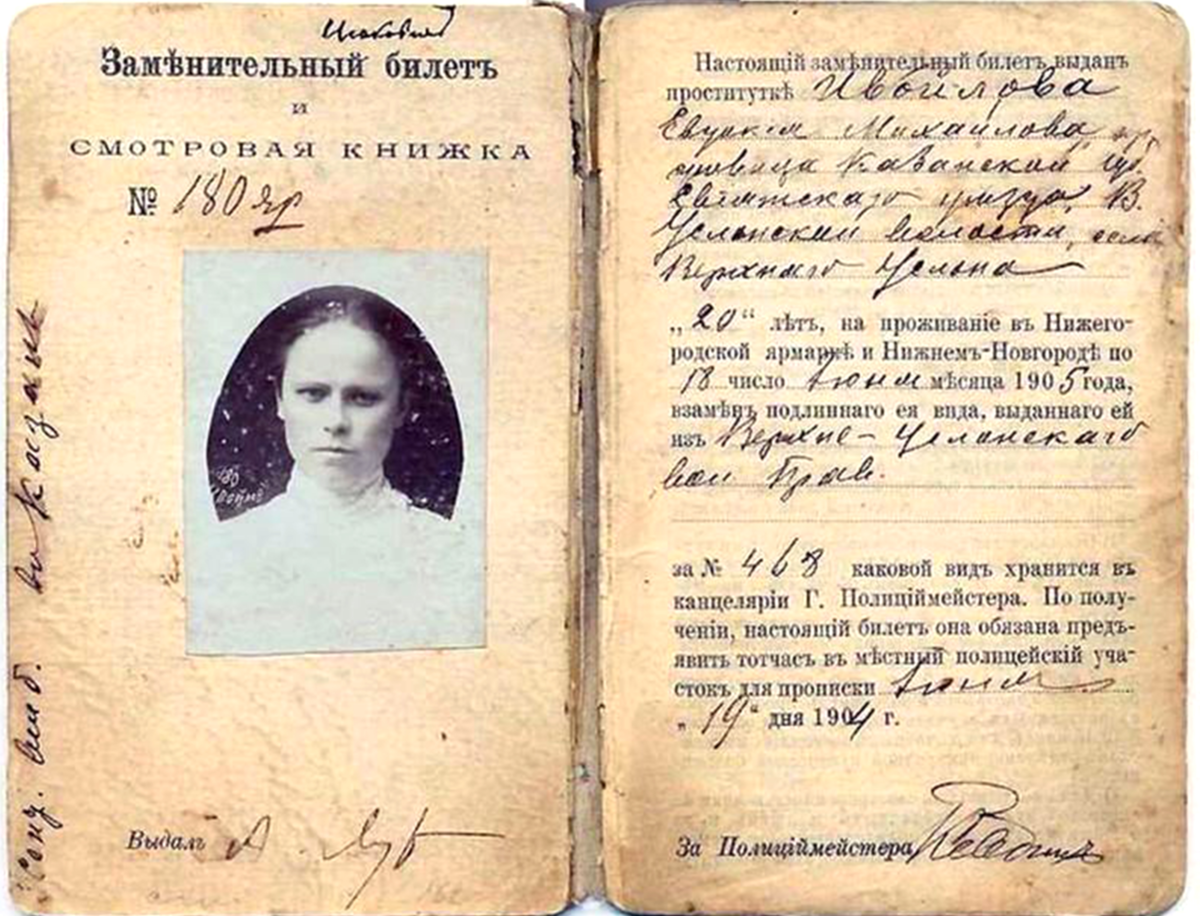 Замѣнительный билетъ
и
СМОТРОВАЯ КНИЖКА
№ 180 яр
180
Выдалъ
Настоящій замѣнительный билетъ выданъ
проституткѣ Ивойлова
Евдокія Михайлова
Казанской губ.
Свіяжскаго уѣзда, В.
Услонской волости, села
Верхняго Услона
„20“ лѣтъ, на проживаніе въ Нижего-
родской ярмаркѣ и Нижнемъ-Новгородѣ по
18 число Іюня мѣсяца 1905 года,
взамѣнъ подлиннаго ея вида, выданнаго ей
изъ Верхне-Услонскаго
вол Прав.
за № 468 каковой видъ хранится въ
канцеляріи Г. Полиціймейстера. По полу-
ченіи, настоящій билетъ она обязана предъ-
явить тотчасъ въ мѣстный полицейскій уча-
стокъ для прописки Іюня
„19“ дня 1904 г.
За Полиціймейстера